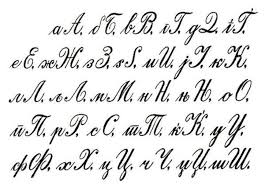 аА, бБ, вВ, гГ, дД, ѓЃ,
еЕ, жЖ, зЗ, ѕЅ, иИ, јЈ, кК,
лЛ, љЉ, мМ, нН, њЊ, оО,
пП, рР, сС, тТ, ќЌ, уУ,
фФ, хХ, цЦ, чЧ, џЏ, шШ.